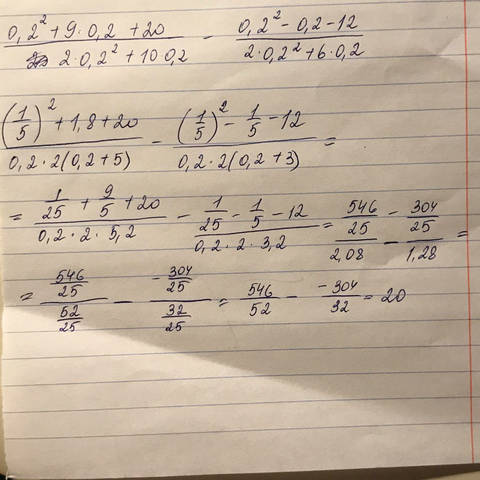 (0,2² + 9·0,2 + 20)/(2·0,2² + 10·0,2) - (0,2² - 0,2 - 12)/(2·0,2² + 6·0,2)
((1/5)² + 1,8 + 20)/(0,2·2(0,2+5)) - ((1/5)² - 1/5 - 12)/(0,2·2(0,2+3)) =
= (1/25 + 9/5 + 20)/(0,2·2·5,2) - (1/25 - 1/5 - 12)/(0,2·2·3,2) = (546/25)/2,08 - (-304/25)/1,28 =
= (546/25)/(52/25) - (-304/25)/(32/25) = 546/52 - -304/32 = 20